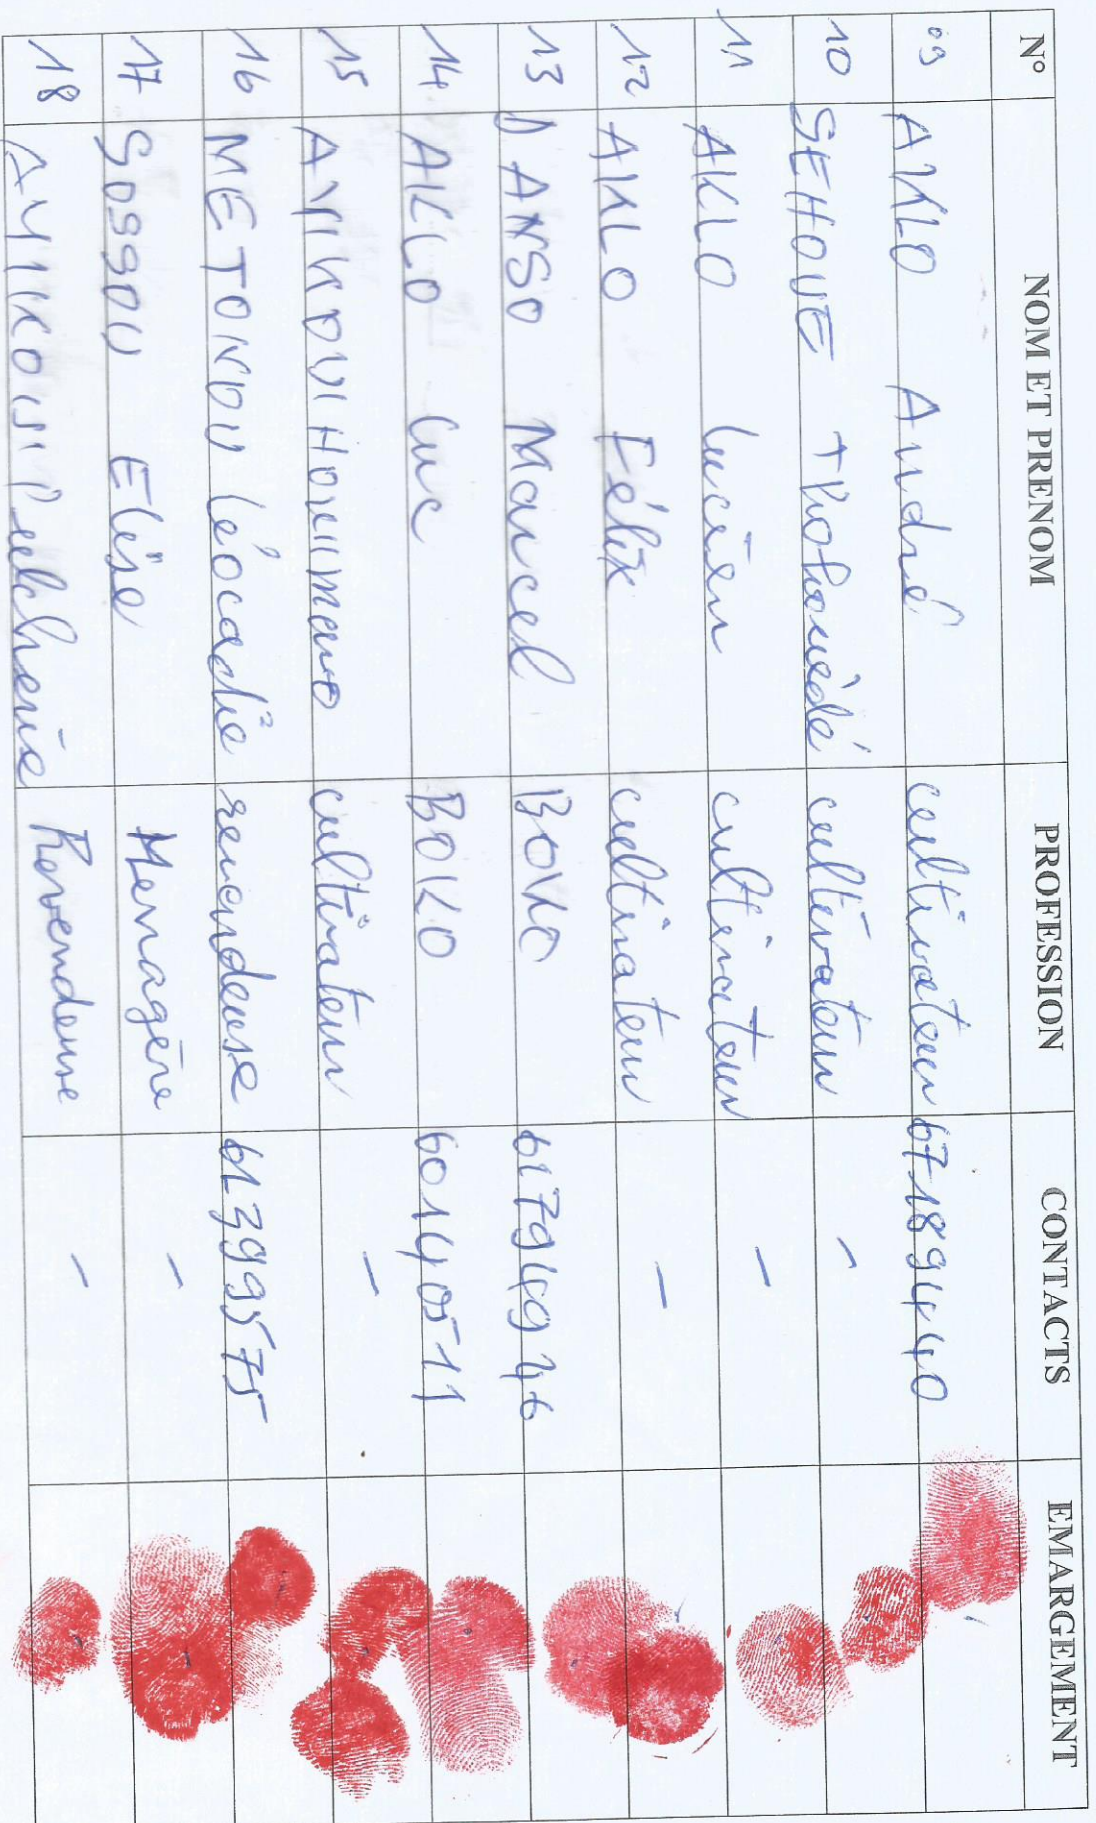 N° NOM ET PRENOM PROFESSION CONTACTS EMARGEMENT
09 AKLO André cultivateur 67189440
10 SEHOUE cultivateur -
11 AKLO Lucien cultivateur -
12 AKLO Félix cultivateur -
13 DANSO Marcel 61794946
14 AKLO Luc BOKO 60140511
15 cultivateur -
16 METONOU Léocadie revendeuse 61399575
17 SOSSOU Elise Menagère -
18 Pulcherie Revendeuse -